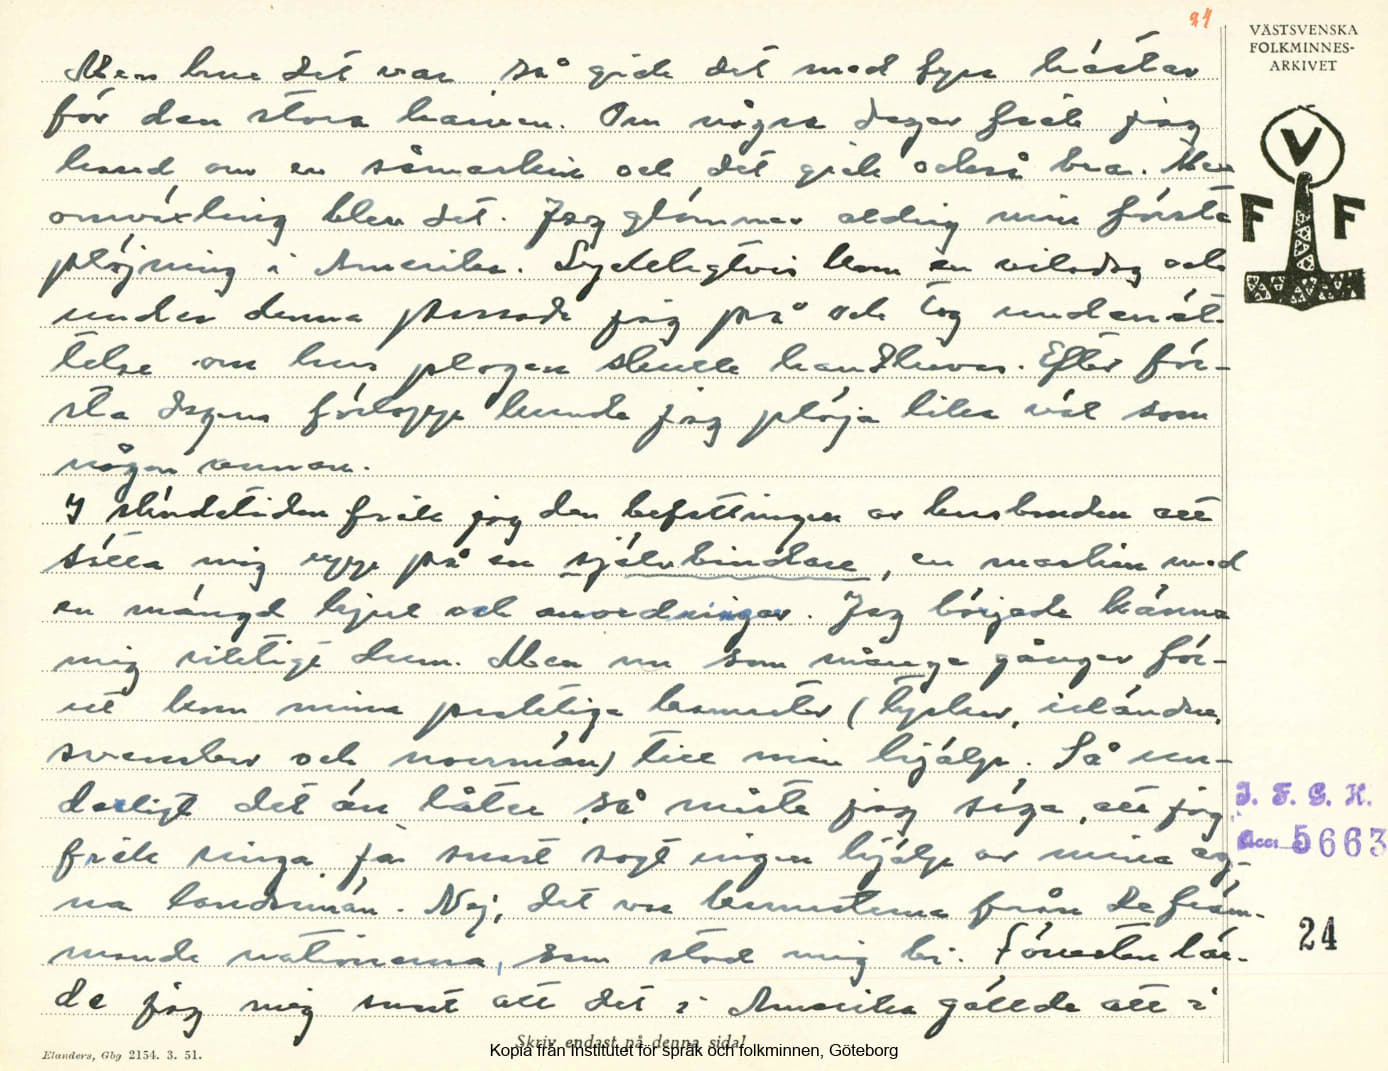 24
VÄSTSVENSKA
FOLKMINNES-
ARKIVET
V
F F
Men hur det var så gick det med fyra hästar
för den stora harven. Om några dagar fick jag
hand om en såmaskin och det gick också bra. Men
omväxling blev det. Jag glömmer aldrig min första
plöjning i Amerika. Lyckligtvis kom en vilodag och
under denna passade jag på och tog underrät-
telse om hur plogen skulle handhavas. Efter för-
sta dagens förlopp kunde jag plöja lika väl som
någon annan.
I skördetiden fick jag den befattningen av husbonden att
sätta mig upp på en självbindare, en maskin med
en mängd hjul och anordningar. Jag började känna
mig riktigt dum. Men nu som många gånger för-
ut kom mina präktiga kamrater (tyskar, irländare,
svenskar och norrmän) till min hjälp. Så un-
derligt det än låter, så måste jag säga, att jag
fick ringa ja snart sagt ingen hjälp av mina eg-
na landsmän. Nej, det var kamraterna från de främ-
mande nationerna, som stod mig bi. Föresten lär-
de jag mig snart att det i Amerika gällde att i
I. F. G. H.
Acc. 5663
24
Skriv endast på denna sida!
Elanders, Gbg 2154. 3. 51.
Kopia från Institutet för språk och folkminnen, Göteborg